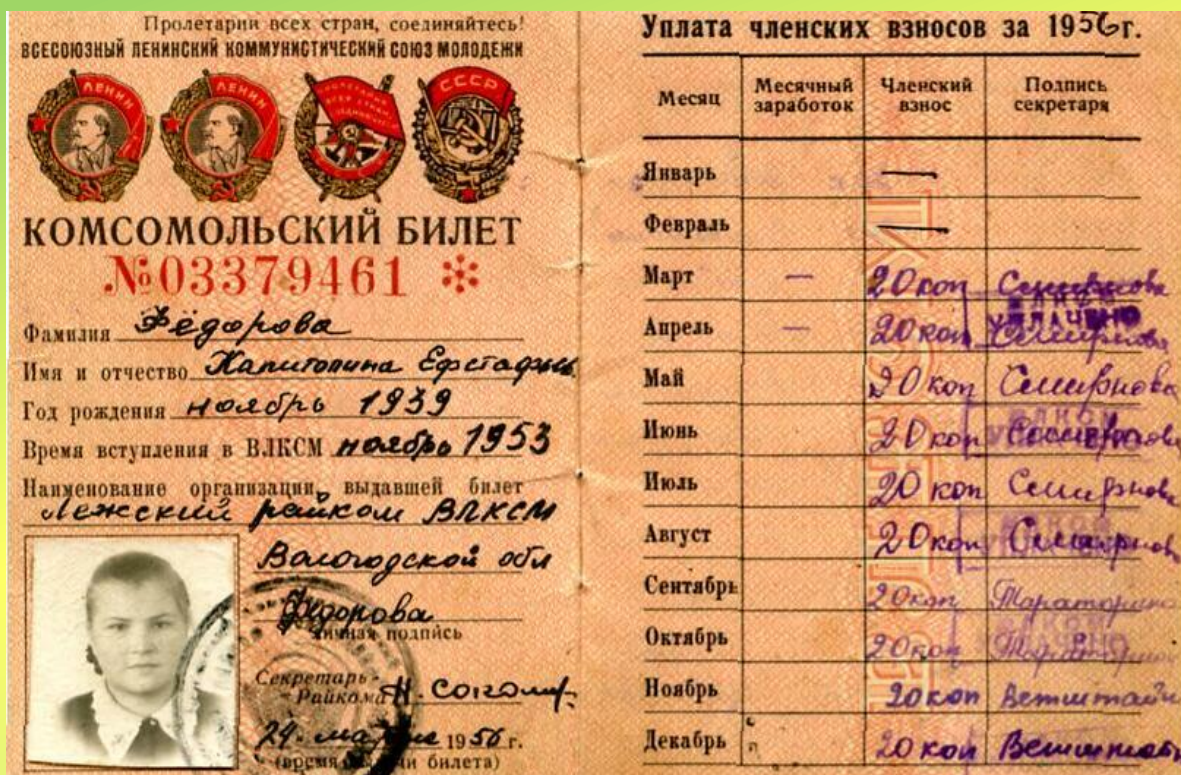 Пролетарии всех стран, соединяйтесь!
ВСЕСОЮЗНЫЙ ЛЕНИНСКИЙ КОММУНИСТИЧЕСКИЙ СОЮЗ МОЛОДЕЖИ
ЛЕНИН
ЛЕНИН
СССР
КОМСОМОЛЬСКИЙ БИЛЕТ
№03379461
Фамилия Фёдорова
Имя и отчество Капитолина Ефстафьев
Год рождения ноябрь 1939
Время вступления в ВЛКСМ ноябрь 1953
Наименование организации, выдавшей билет
Лежский райком ВЛКСМ
Вологодской обл
Фёдорова
Личная подпись
Секретарь
Райкома Н.
24. марта 1956 г.
(время выдачи билета)
Уплата членских взносов за 1956г.
Месяц
Месячный заработок
Членский взнос
Подпись секретаря
Январь —
Февраль —
Март — 20 коп Смирнова
Апрель — 20 коп Смирнова
Май 20 коп Смирнова
Июнь 20 коп Смирнова
Июль 20 коп Смирнова
Август 20 коп Смирнова
Сентябрь 20 коп
Октябрь 20 коп
Ноябрь 20 коп
Декабрь 20 коп